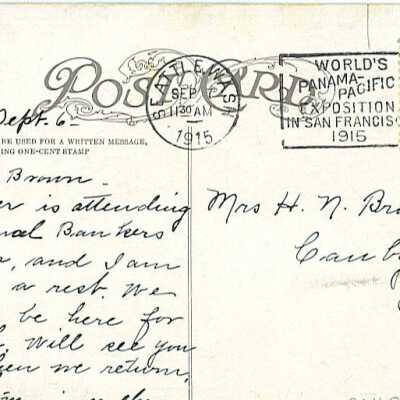 POST CARD
SEATTLE, WASH.
SEP 7
11 30 AM
1915
WORLD'S
PANAMA-PACIFIC
EXPOSITION
IN SAN FRANCISC
1915
Sept. 6-
BE USED FOR A WRITTEN MESSAGE,
ING ONE-CENT STAMP
Brown-
er is attending
nal Bankers
, and I am
a rest. We
be here for
. Will see you
hen we return,
Mrs H. N. Bro
Canb